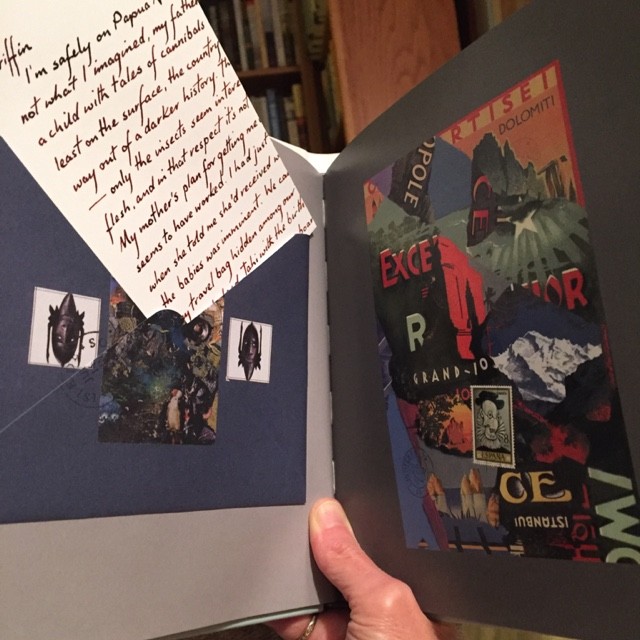 riffin
I'm safely on Papua
not what I imagined, my father
a child with tales of cannibals
least on the surface, the country
way out of a darker history
— only the insects seem
flesh, and in that respect it's
My mother's plan for getting
seems to have worked. I had just
when she told me she'd received
the babies was imminent. We
travel bag hidden among
with the
S
RTISEI
DOLOMITI
OPOLE
CE
EXCE
IOR
R
GRAND-
ESPAÑA
CE
ISTANBUL